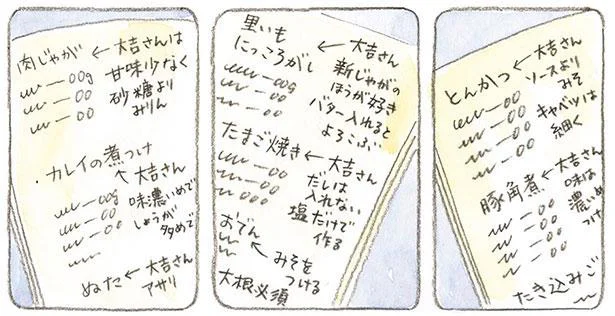 肉じゃが
← 大吉さんは
甘味少なく
砂糖より
みりん
00g
00
00
・カレイの煮つけ
↑ 大吉さん
味濃いめで
しょうが
多めで
00g
00
00
ぬた ← 大吉さん
アサリ
里いも
にっころがし
← 大吉さん
新じゃがの
ほうが好き
バター入れると
よろこぶ
00g
00
00
たまご焼き ← 大吉さん
だしは
入れない
塩だけで
作る
00
00
000
おでん
← みそを
つける
大根必須
とんかつ
← 大吉さん
ソースより
みそ
キャベツは
細く
00
00
00
00
豚角煮 ← 大吉さん
味は
濃いめ
00
00
00
00
たき込みご